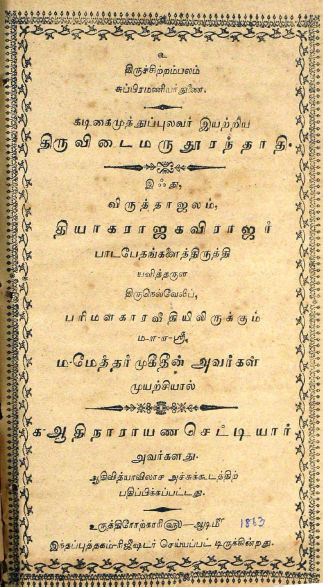 உ
திருச்சிற்றம்பலம்
சுப்பிரமணியர்துணை.
கடிகைமுத்துப்புலவர் இயற்றிய
திருவிடைமருதூரந்தாதி.
இஃது,
விருத்தாஜலம்,
தியாகராஜகவிராஜர்
பாடபேதங்களைத்திருந்தி
யளித்தருள
திருநெல்வேலிப்,
பரிமளகாரவீதியிலிருக்கும்
ம-ள-ள-ஸ்ரீ,
ம-மேத்தர்முகிதீன் அவர்கள்
முயற்சியால்
க-ஆதிநாராயணசெட்டியார்
அவர்களது.
ஆதிவித்யாவிலாச அச்சுக்கூடத்திற்
பதிப்பிக்கப்பட்டது.
உருத்திரோற்காரி௵—ஆடி௴ 1863
இந்தப்புத்தகம்-ரிஜிஷ்டர் செய்யப்பட் டிருக்கின்றது.